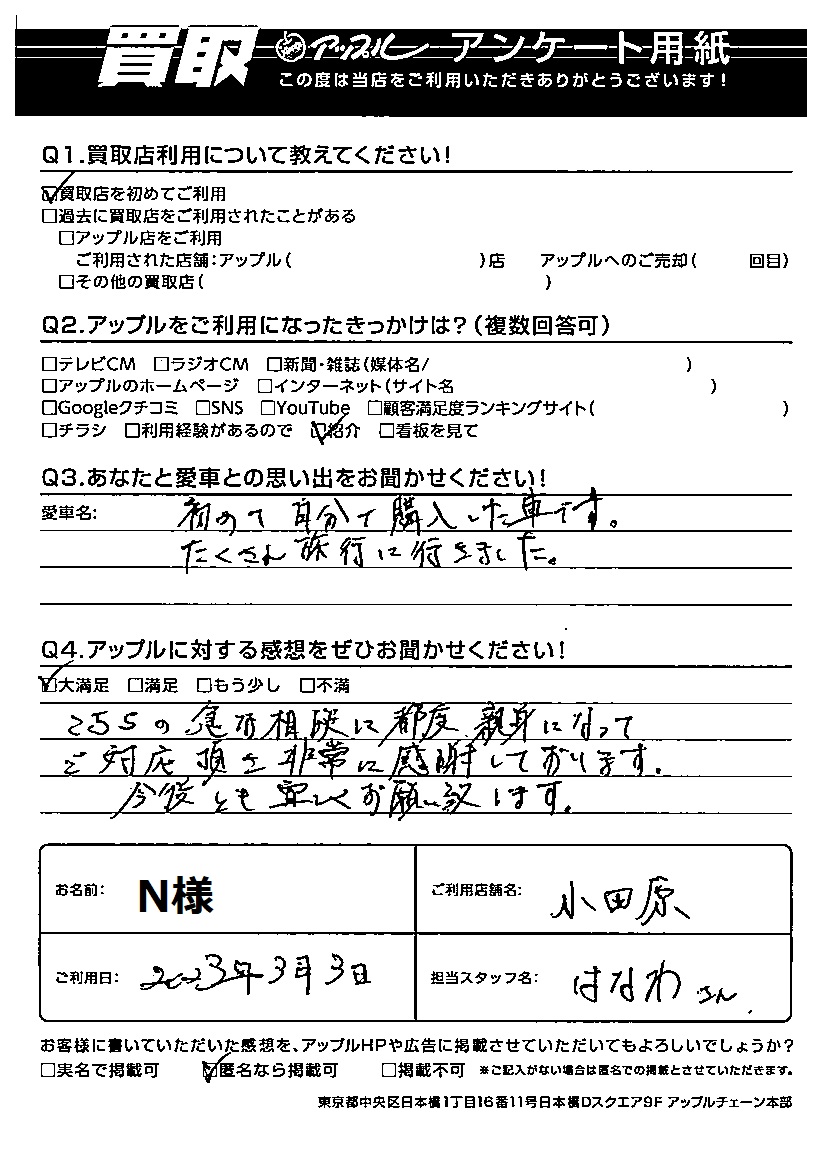 買取 アップル アンケート用紙
この度は当店をご利用いただきありがとうございます!
Q1.買取店利用について教えてください!
☑買取店を初めてご利用
□過去に買取店をご利用されたことがある
□アップル店をご利用
ご利用された店舗:アップル( )店 アップルへのご売却( 回目)
□その他の買取店( )
Q2.アップルをご利用になったきっかけは?(複数回答可)
□テレビCM □ラジオCM □新聞・雑誌(媒体名/ )
□アップルのホームページ □インターネット(サイト名 )
□Googleクチコミ □SNS □YouTube □顧客満足度ランキングサイト( )
□チラシ □利用経験があるので ☑紹介 □看板を見て
Q3.あなたと愛車との思い出をお聞かせください!
愛車名: 初めて自分で購入した車です。
たくさん旅行に行きました。
Q4.アップルに対する感想をぜひお聞かせください!
☑大満足 □満足 □もう少し □不満
こちらの急な相談に都度親身になって
ご対応頂き非常に感謝しております。
今後とも宜しくお願い致します。
お名前: N様 ご利用店舗名: 小田原
ご利用日: 2023年3月3日 担当スタッフ名: はなわさん
お客様に書いていただいた感想を、アップルHPや広告に掲載させていただいてもよろしいでしょうか?
□実名で掲載可 ☑匿名なら掲載可 □掲載不可 ※ご記入がない場合は匿名での掲載とさせていただきます。
東京都中央区日本橋1丁目16番11号日本橋Dスクエア9F アップルチェーン本部